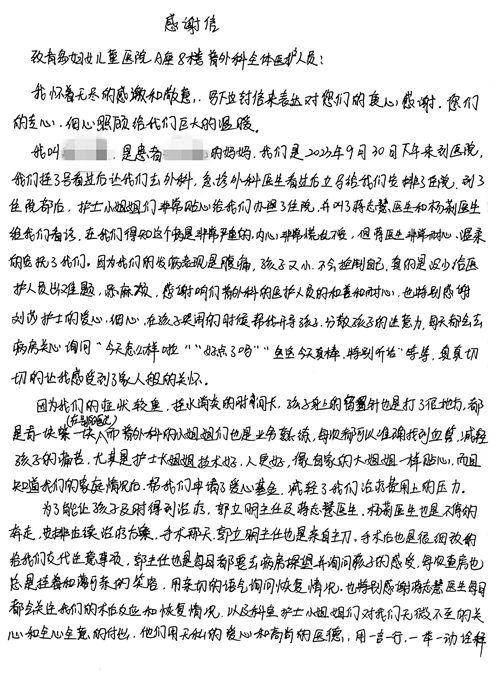 感谢信
致青岛妇女儿童医院A座8楼普外科全体医护人员:
我怀着无尽的感激和敬意,写下这封信来表达对您们的衷心感谢,您们
的爱心、细心照顾给我们巨大的温暖。
我叫 是患者 的妈妈,我们是2023年9月30日下午来到医院,
我们挂了号看过后让我们去外科,急诊外科医生看过后立马给我们安排了住院,到了
住院部后,护士小姐姐们非常贴心给我们办理了住院,并叫了蒋志慧医生和杨菊医生
给我们看诊,在我们得知这个病是非常严重的,内心非常慌乱不安,但蒋医生非常耐心、温柔
的安抚了我们。因为我们的发病表现是腹痛,孩子又小,不会控制自己,真的是没少给医
护人员出难题,添麻烦,感谢咱们普外科的医护人员的和善和耐心,也特别感谢
刘莎护士的爱心、细心,在孩子哭闹的时候帮我开导孩子,分散孩子的注意力,每天都会去
病房关心询问“今天怎么样啦”“好点了吗”“ 今天真棒,特别听话”等等,真真切
切的让我感受到了家人般的关怀。
因为我们的症状较重,挂水消炎的时间长,孩子身上的留置针也是打了很多地方,都
是青一块紫一块,而普外科的小姐姐们也是业务熟练,每次都可以准确找到血管,减轻
孩子的痛苦,尤其是护士大姐姐技术好,人更好,像自家的大姐姐一样贴心,而且
知道我们的家庭情况后,帮我们申请了爱心基金,减轻了我们治疗费用上的压力。
为了能让孩子及时得到治疗,郭立明主任及蒋志慧医生,杨菊医生也是不停的
奔走,安排应该治疗方案,手术那天,郭立明主任也是亲自主刀,手术后也是很细致的
给我们交代注意事项,郭主任也是每日都要去病房探望并询问孩子的感受,每次查房也
总是挂着和蔼可亲的笑容,用亲切的语气询问恢复情况,也特别感谢蒋志慧医生每日
都会关注我们的术后反应和恢复情况,以及科室护士小姐姐们对我们无微不至的关
心和全心全意的付出,他们用无私的爱心和高尚的医德,用一言一行、一举一动诠释